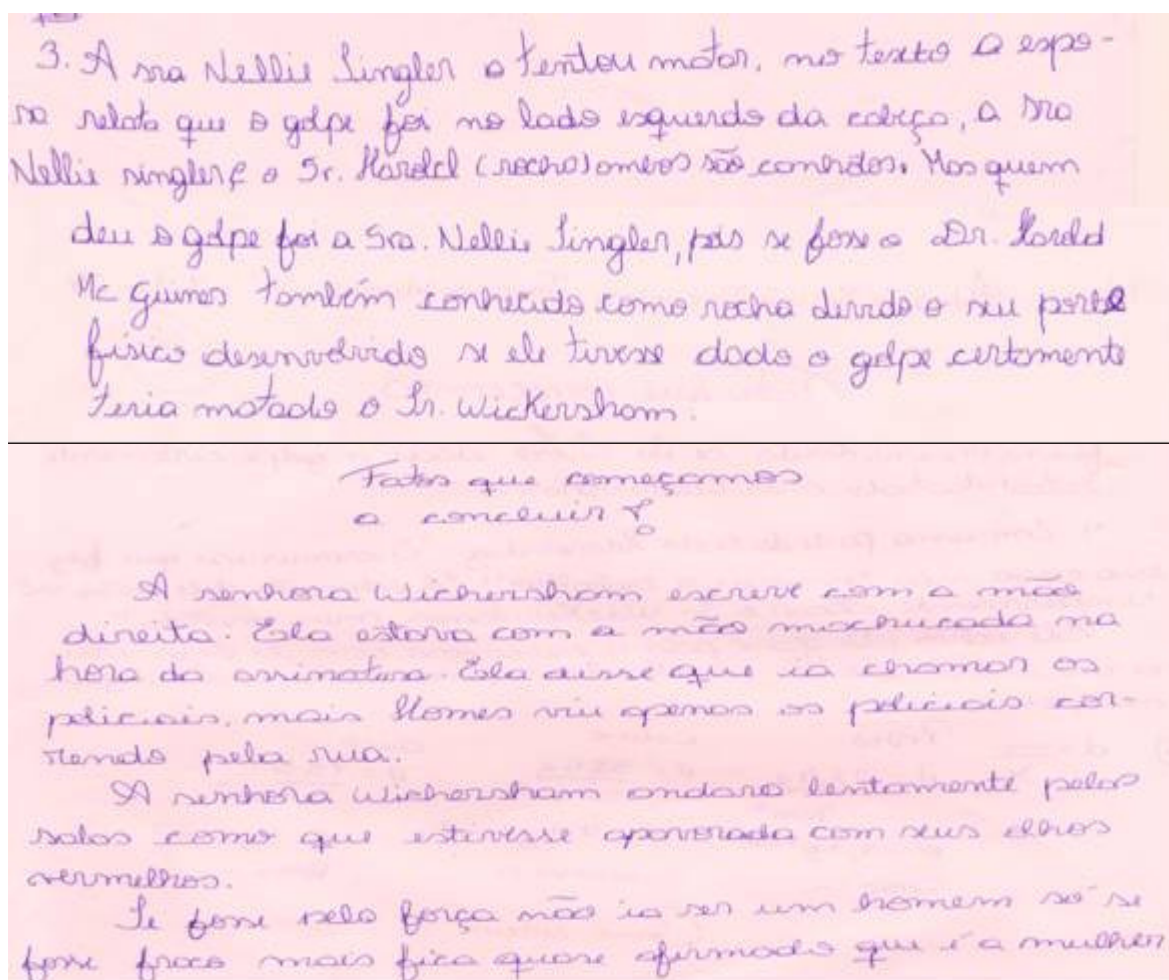 3. A sra Nellie Singler o tentou matar, no texto a espo-
sa relata que o golpe foi no lado esquerdo da cabeça, a sra
Nellie singler e o Sr. Harold (rocha) ambos são canhotos. Mas quem
deu o golpe foi a Sra. Nellie Singler, pois se fosse o Dr. Harold
Mc Guines também conhecido como rocha devido o seu porte
físico desenvolvido se ele tivesse dado o golpe certamente
teria matado o Sr. Wickersham.
Fatos que começamos
a concluir?
A senhora Wickersham escreve com a mão
direita. Ela estava com a mão machucada na
hora da assinatura. Ela disse que ia chamar os
policiais, mais Homes viu apenas os policiais cor-
rendo pela rua.
A senhora Wickersham andava lentamente pelas
salas como que estivesse apavorada com seus olhos
vermelhos.
Se fosse pela força não ia ser um homem só se
fosse fraco mais fica quase afirmado que é a mulher